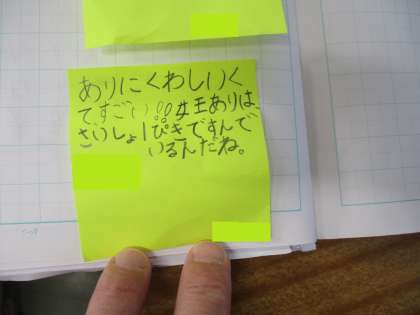 ありにくわしいく
てすごい!!女王ありは、
さいしょ1ぴきですんで
いるんだね。